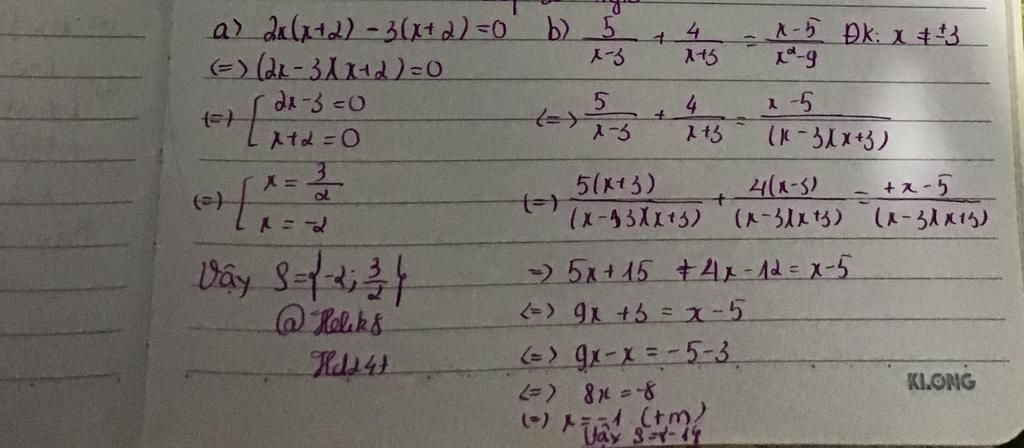 a) 2x(x+2) - 3(x+2) = 0
<=> (2x-3)(x+2) = 0
<=> [ 2x-3 = 0
x+2 = 0
<=> [ x = 3/2
x = -2
Vậy S = {-2; 3/2}
b) 5/(x-3) + 4/(x+3) = (x-5)/(x²-9) ĐK: x ≠ ±3
<=> 5/(x-3) + 4/(x+3) = (x-5)/((x-3)(x+3))
<=> 5(x+3)/((x-3)(x+3)) + 4(x-3)/((x-3)(x+3)) = (x-5)/((x-3)(x+3))
=> 5x+15 + 4x-12 = x-5
<=> 9x+3 = x-5
<=> 9x-x = -5-3
<=> 8x = -8
<=> x = -1 (tm)
Vậy S = {-1}
KLONG